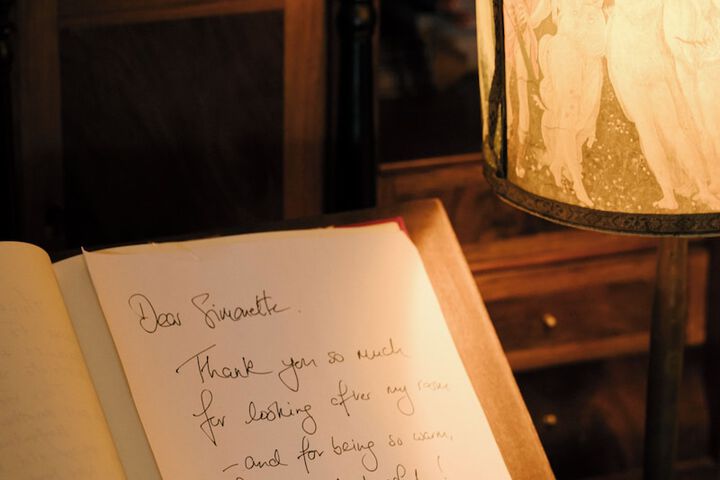 Dear Simonetta.
Thank you so much
for looking after my room
- and for being so warm,